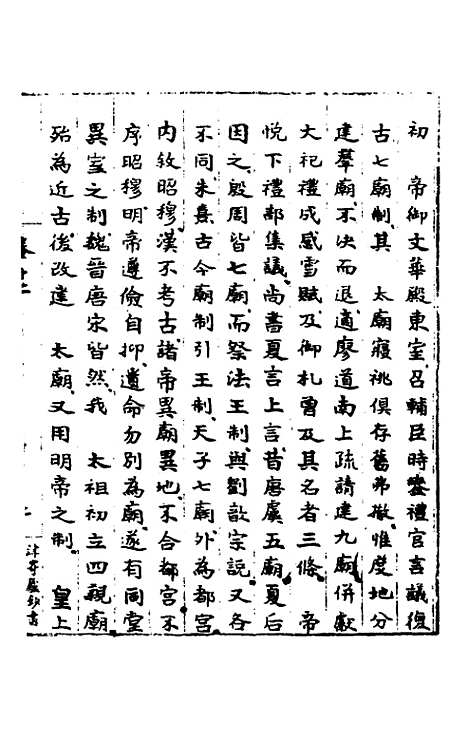 初　帝御文華殿東室召輔臣時鑾禮官言議復
古七廟制其　太廟寢祧俱存舊弗撤惟度地分
建羣廟不决而退適廖道南上疏請建九廟併獻
大祀禮成感雪賦及御札曾及其名者三條　帝
悅下禮部集議尚書夏言上言昔唐虞五廟夏后
因之殷周皆七廟而祭法王制與劉歆宗說又各
不同朱熹古今廟制引王制天子七廟外為都宮
内敘昭穆漢不考古諸帝異廟異地不合都宮不
序昭穆明帝遵儉自抑遺命勿別為廟遂有同堂
異室之制魏晉唐宋皆然我　太祖初立四親廟
殆為近古後改建　太廟又用明帝之制　皇上